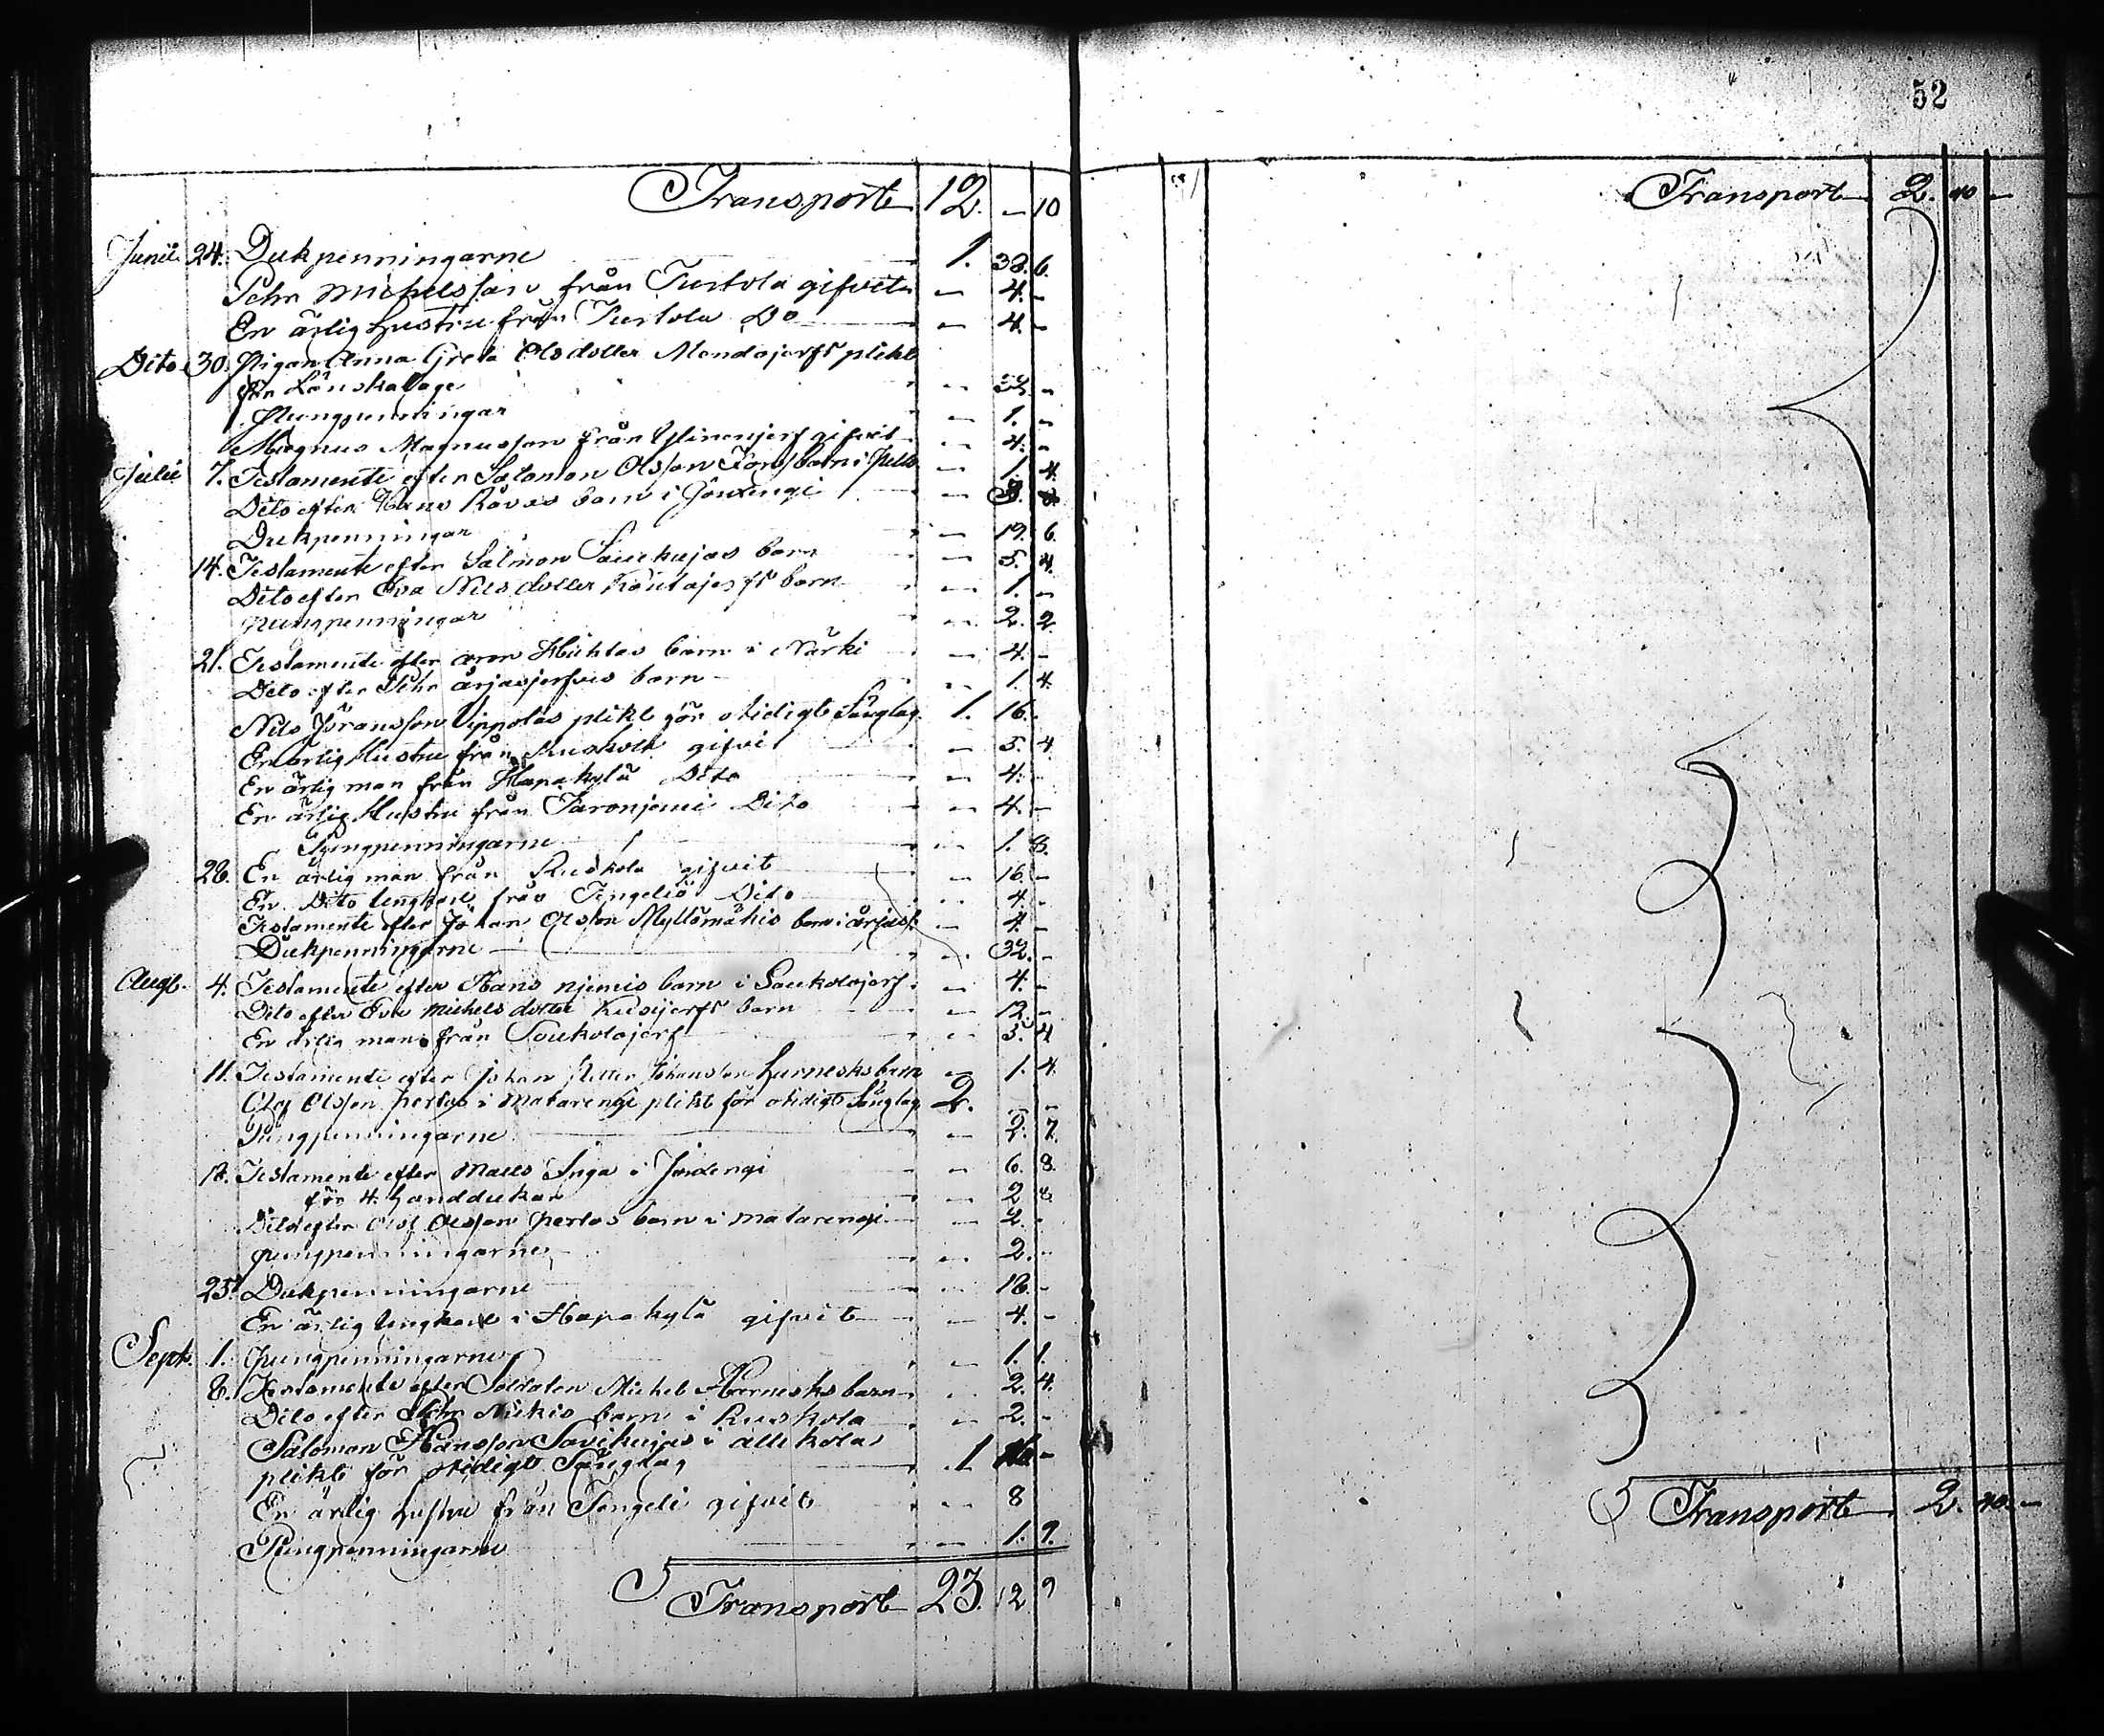 Transport 12. – 10
Junii 24. Dukpenningarne 1. 38. 6.
Pehr Michelsson från Turtola gifvit – 4. –
En ärlig Hustru från Turtola Do – 4. –
Dito 30. Pigan Anna Greta Olsdotter plikt
för Lönskaläge – –
Pungpenningar – 1. –
Magnus Magnusson från gifvit – 4. –
Julii 7. Testamente efter Salomon Olsson barn i Pello – 1. 4.
Dito efter Hans Rävas barn i –
Dukpenningar – 19. 6.
14. Testamente efter Salmon barn – 5. 4.
Dito efter Eva Nilsdotter barn – 1. –
pungpenningar – 2. 2.
21. Testamente efter aron Huhtas barn i Närki – 4. –
Dito efter Pehr ärjasjerfvis barn – 1. 4.
Nils Jöransson Vippolas plikt för otidigt Sänglag 1. 16. –
En ärlig Hustru från gifvit – 5. 4.
En ärlig man från Hapakylä Dito – 4. –
En ärlig Hustru från Dito – 4. –
Pungpenningarne – 1. 8.
28. En ärlig man från Ruskola gifvit – 16. –
En Dito Ungkarl från Tengeliö Dito – 4. –
Testamente efter Johan Olsson Myllömäkis barn i – 4. –
Dukpenningarne – 32. –
Augt. 4. Testamente efter Hans njemis barn i Soukolojerf – 4. –
Dito efter Eva Michelsdotter Kuosijerfs barn – 12. –
En ärlig man från Soukolojerf – 5. 4
11. Testamente efter Johan Petter Johansson barn – 1. 4.
Olof Olsson Pertas i Matarengi plikt för otidigt Sänglag 2. – –
Pungpenningarne – 2. 7.
18. Testamente efter Inga i – 6. 8.
för 4. handdukar – 2 8.
Dito efter Olof Olsson Pertas barn i Matarengi – 2. –
pungpenningarne – 2. –
25. Dukpenningarne – 18. –
En ärlig Ungkarl i Hapakylä gifvit – 4. –
Sept. 1. Pungpenningarne – 1. 1.
8. Testamente efter Soldaten Michel barn – 2. 4.
Dito efter Pehr Niukis barn i Ruskola – 2. –
Salomon Hansson Savikujas i allkola
plikt för otidigt Sänglag 1 16 –
En ärlig Hustru från Tengeli gifvit – 8
Pungpenningarne – 1. 9.
Transport 23. 12. 9
52
Transport 2. 40 –
Transport 2. 40. –